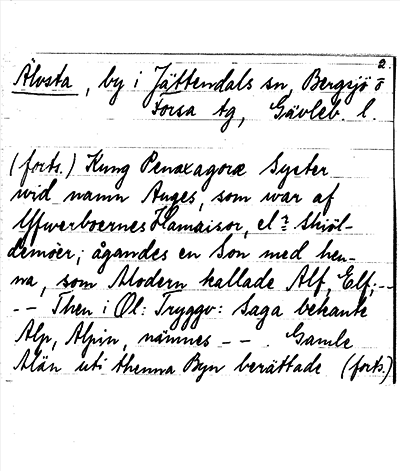 2.
Älvsta, by i Jättendals sn, Bergsjö o
Forsa tg, Gävleb. l.
(forts.) Kung Penaxagoræ Syster
wid namn Auges, som war af
Yfwerboernes Hamaisor, el r Skiöl-
demöer; ågandes en Son med hen-
na, som Modern kallade Alf, Elf; --
-- Then i Ol: Tryggv: Saga bekante
Alp, Alpin, nämnes - - . Gamle
Män uti thenna Byn berättade (forts.)